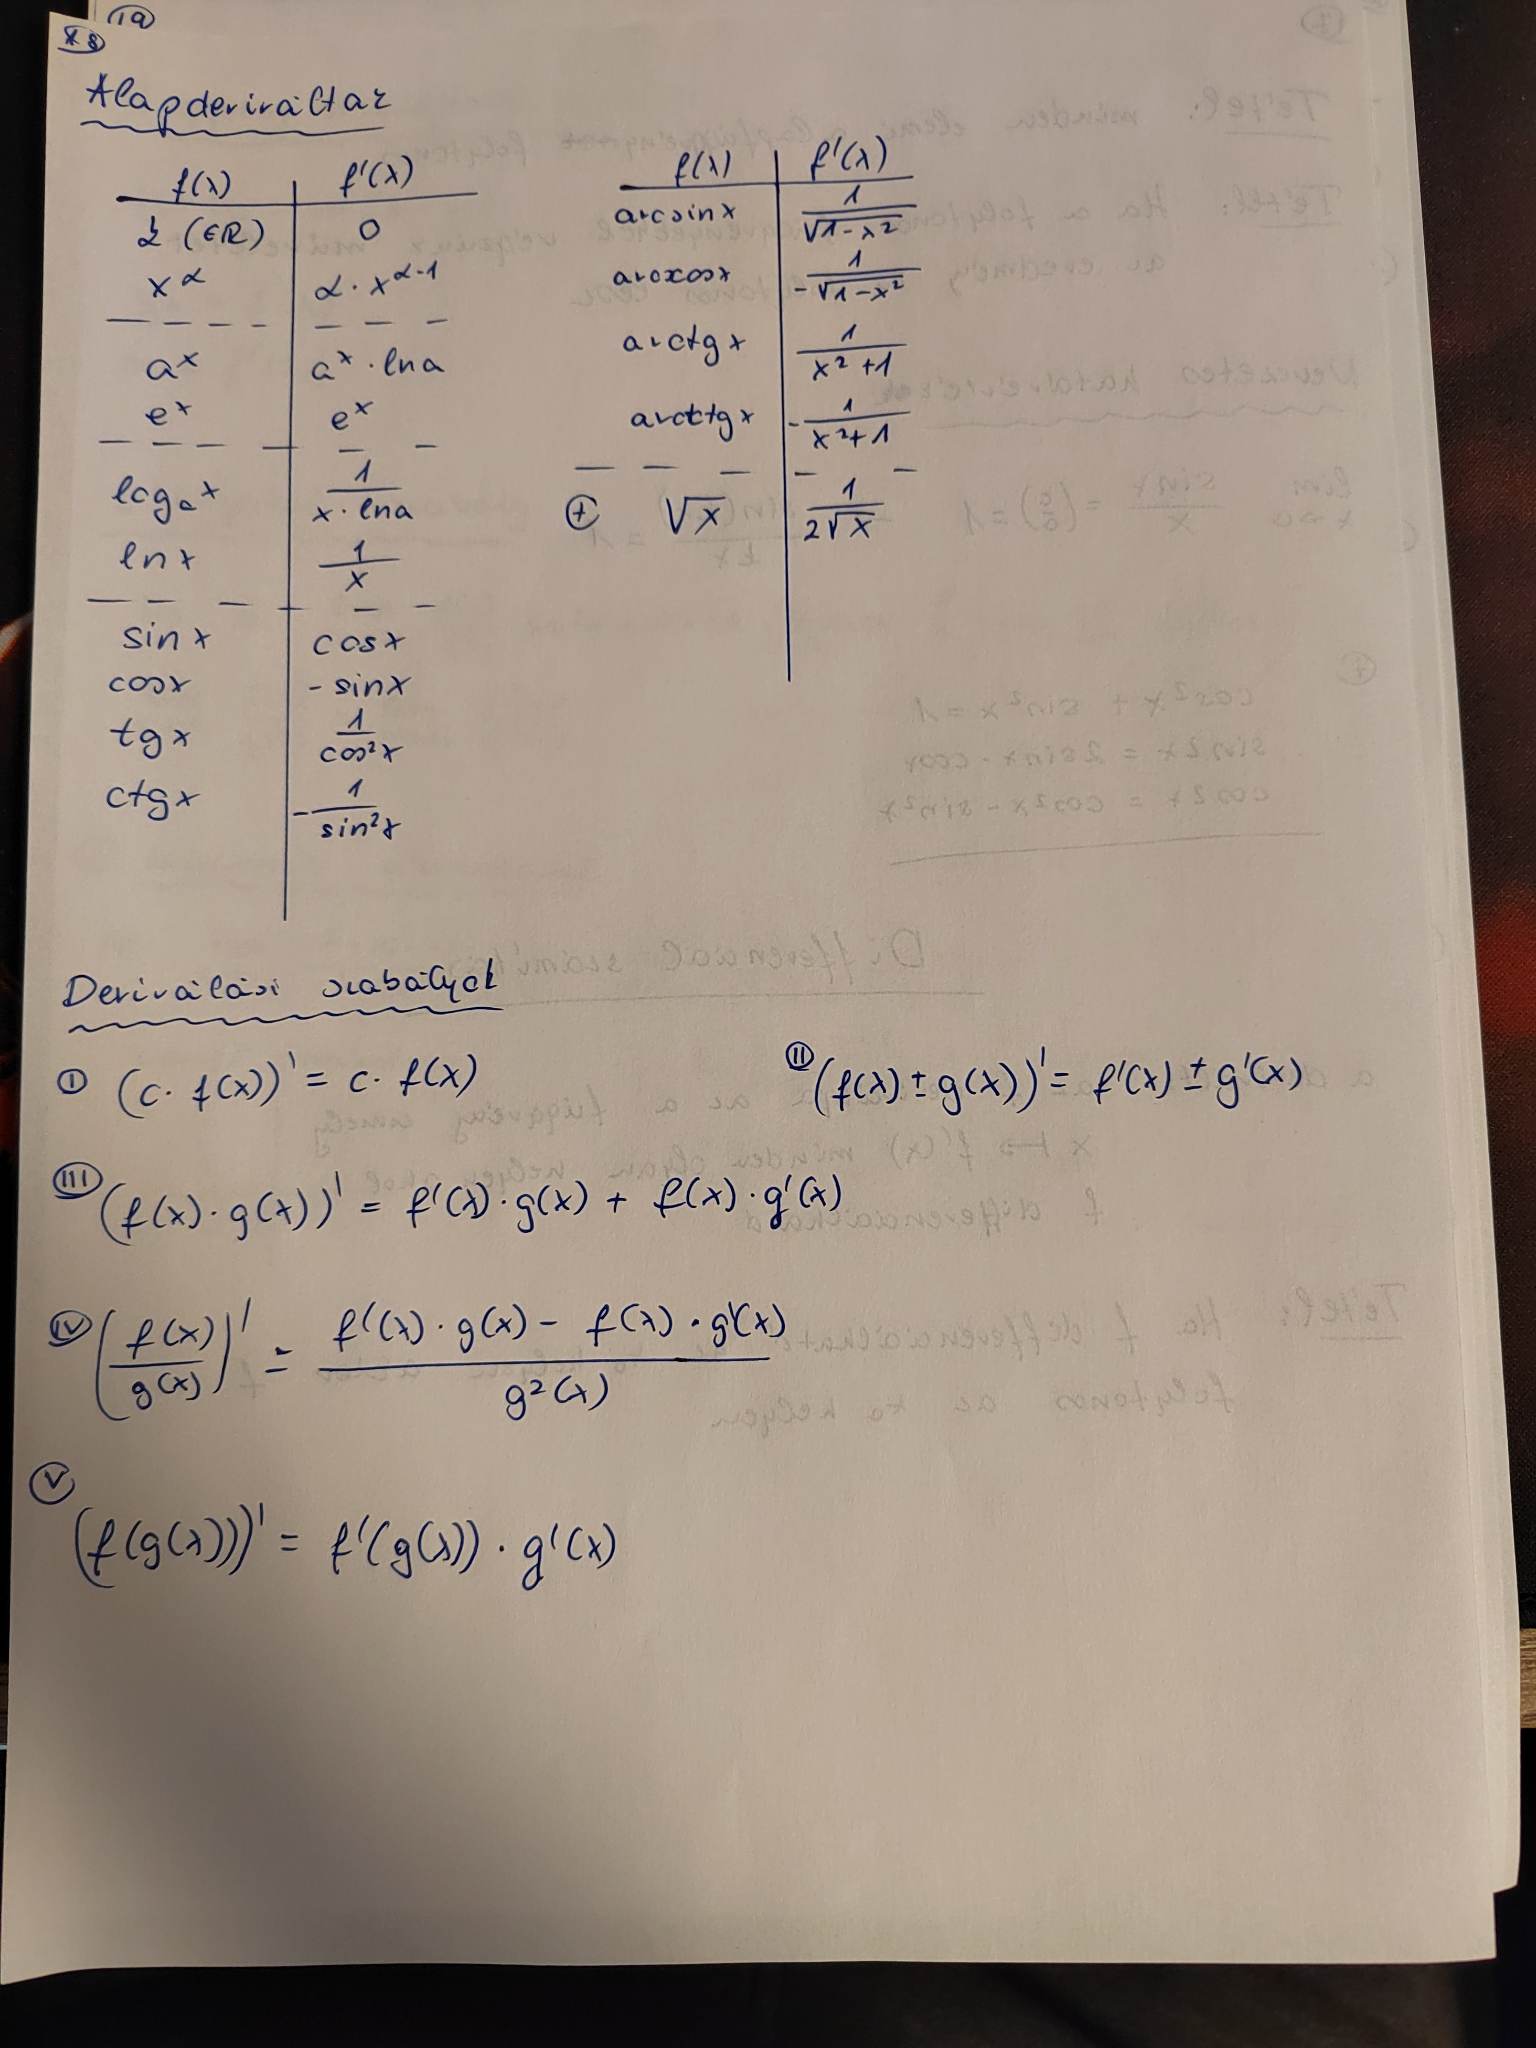 10
8
Alapderiváltak
f(x) | f'(x)
k (∈R) | 0
x^α | α · x^(α-1)
a^x | a^x · ln a
e^x | e^x
log_a x | 1/(x · ln a)
ln x | 1/x
sin x | cos x
cos x | - sin x
tg x | 1/cos²x
ctg x | - 1/sin²x
f(x) | f'(x)
arcsin x | 1/√(1-x²)
arccos x | - 1/√(1-x²)
arctg x | 1/(x²+1)
arcctg x | - 1/(x²+1)
+ √x | 1/(2√x)
Deriválási szabályok
I (c · f(x))' = c · f(x)
II (f(x) ± g(x))' = f'(x) ± g'(x)
III (f(x) · g(x))' = f'(x) · g(x) + f(x) · g'(x)
IV (f(x)/g(x))' = (f'(x) · g(x) - f(x) · g'(x))/g²(x)
V
(f(g(x)))' = f'(g(x)) · g'(x)